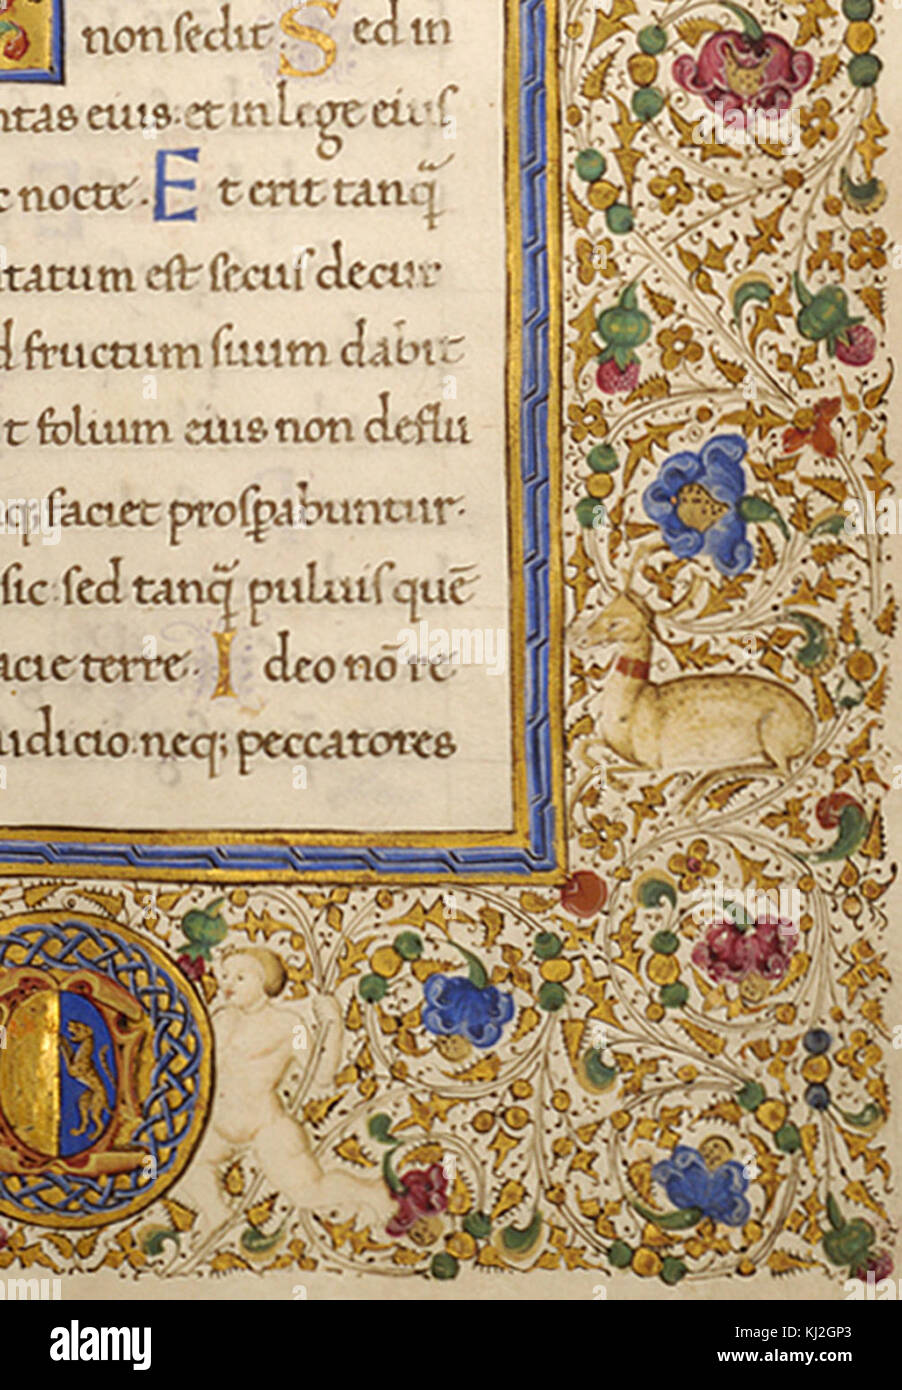 non sedit. Sed in
ntas eius. et in lege eius
c nocte. Et erit tanq̃
tatum est secus decur
d fructum suum dabit
t folium eius non deflu
nq; faciet prosꝑabuntur.
sic: sed tanq̃ puluis quē
acie terre. Ideo nō re
udicio: neq; peccatores
alamy
alamy
Image ID: KJ2GP3
www.alamy.com